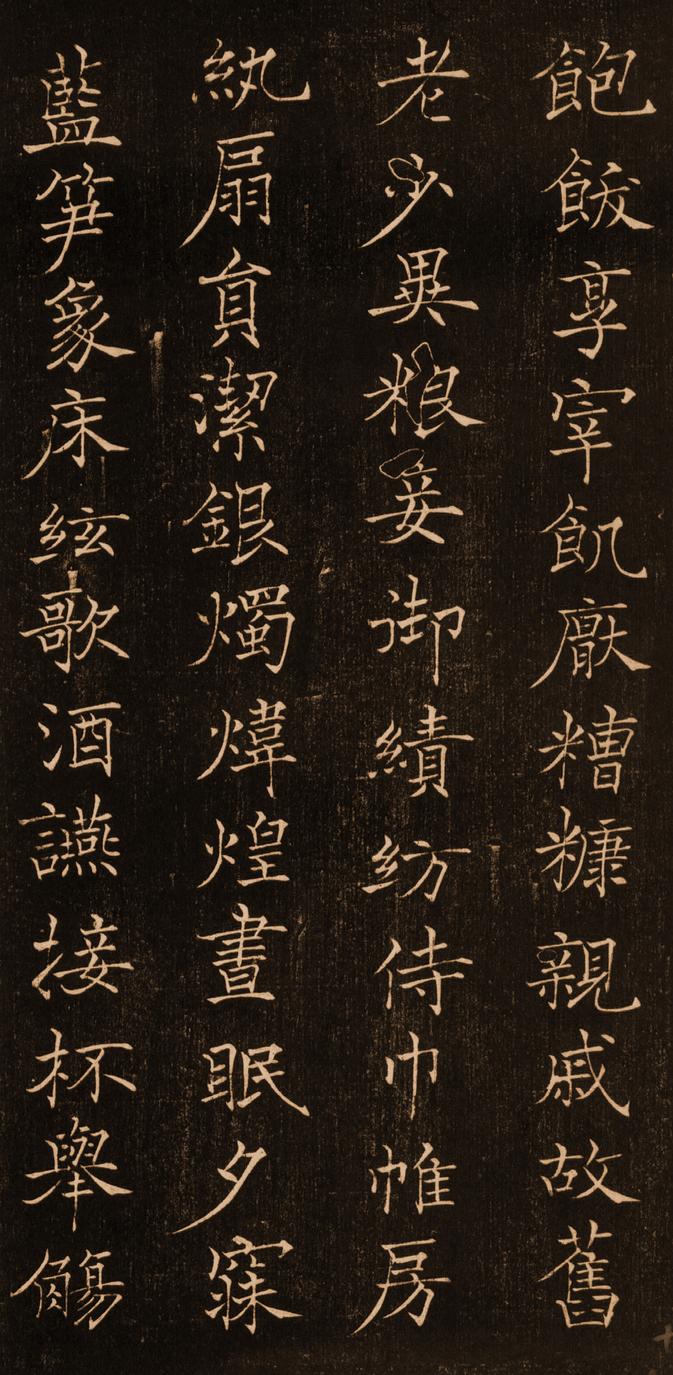 飽飯享宰飢厭糟糠親戚故舊
老少異粮妾御績紡侍巾帷房
紈扇員潔銀燭煒煌晝眠夕寐
藍笋象床絃歌酒讌接杯舉觴